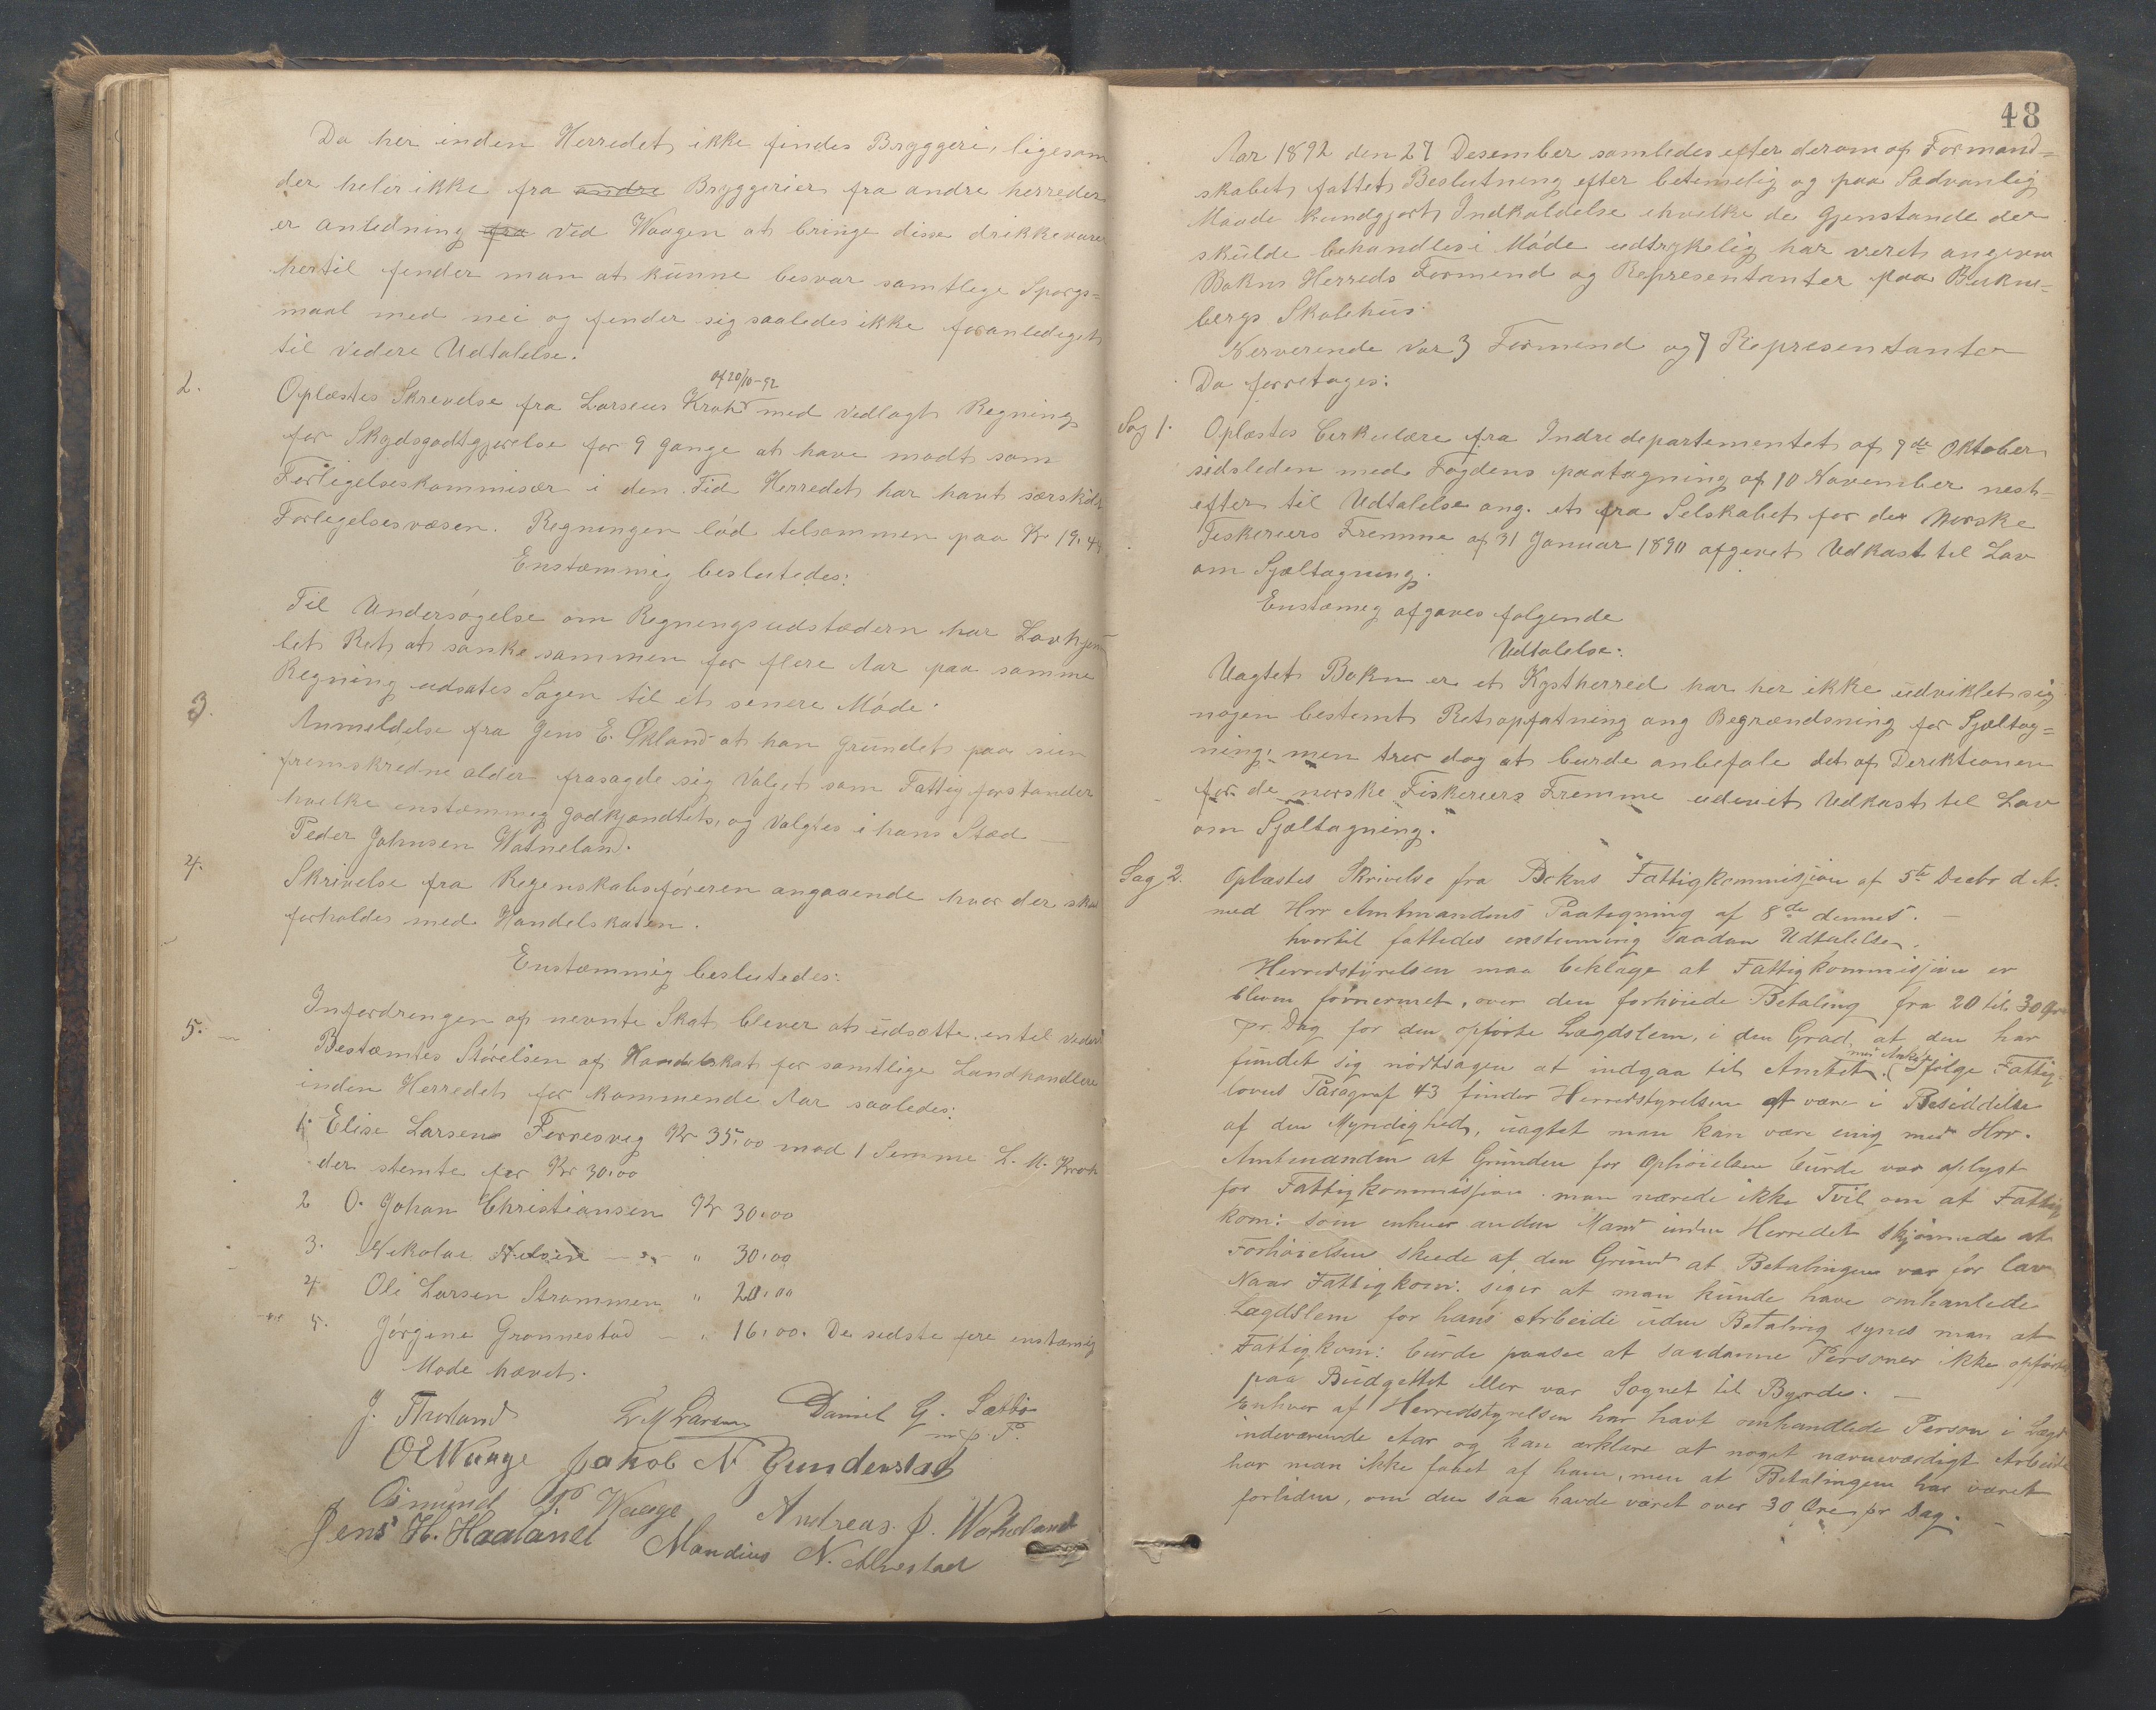 Da her inden Herredet ikke findes Bryggeri, ligesom
der heler ikke fra andre Bryggerier fra andre herreder
er anledning fra ved Waagen at bringe disse drikkevarer
hertil finder man at kunne besvar samtlege Spørgs=
maal med nei og finder sig saaledes ikke foranlediget
til videre Udtalelse.
2. Oplæstes Skrevelse fra Larseus Krok af 20/10-92 med vedlagt Regning
for Skydsgodtgjørelse for 9 gange at have mødt som
Forligelseskommisær i den Tid Herredet har havt særskildt
Forlegelsesvæsen. Regningen lød telsammen paa Kr 19,44
Enstæmmig beslutedes:
Til Undersøgelse om Regningsudstædern har Lovhjem
let Ret at sanke sammen for flere Aar paa samme
Regning udsates Sagen til et senere Møde.
3. Anmeldelse fra Jens E. Økland at han grundet paa sin
fremskredne alder frasagde sig Valget som Fattigforstander
hvelke enstæmmig godkjendtets, og valgtes i hans Stæd
Peder Johnsen Watneland.
4. Skrivelse fra Regenskabsføreren angaaende hvor der skal
forholdes med Handelskaten.
Enstæmmig beslutedes:
Infordringen af nevnte Skat blever at udsætte entil videre
5. Bestæmtes Størelsen af Handelskat for samtlige Landhandlere
inden Herredet for kommende Aar saaledes:
1. Elise Larsen Førresvig Kr 35,00 mod 1 Stemme L. M. Krok
der stemte for Kr 30,00
2 O. Johan Christiansen Kr 30,00
3. Nekolae Nelsen — " — " 30,00
4 Ole Larsen Strømmen " 20,00
5. Jørgine Grønnestad — " 16,00. De sedste fire enstæmig
Møde hævet.
J. Thorland L M Larsen Daniel G. Sætbø
m. p. P.
O E Waage Jakob N Gunderstad
Osmund P. Waage Andreas J. Watneland
Jens H. Haaland Mandius N. Alvestad
48
Aar 1892 den 27 Desember samledes efter derom af Formand=
skabet fattet Beslutning efter betimelig og paa Sædvanlig
Maade kundgjort Indkaldelse ihvelke de Gjenstande der
skulde behandles i Møde udtrykelig har veret angiven
Bokns Herreds Formend og Representanter paa Bukne=
bergs Skolehus.
Nerverende var 3 Formend og 7 Representanter
Da forretages:
Sag 1. Oplæstes Cerkulære fra Indredepartementet af 7de Oktober
sidsleden med Fogdens paategning af 10 November nest=
efter til Udtalelse ang. et fra Selskabet for de Norske
Feskeriers Fremme af 31 Januar 1890 afgevet Udkast til Lov
om Sjæltagning.
Enstæmeg afgaves følgende
Udtalelse:
Uagtet Bokn er et Kystherred har her ikke udviklet sig
nogen bestemt Retsopfatning ang Begrændsning for Sjæltag=
ning, men trer dog at burde anbefale det af Derektionen
for de norske Fiskeriers Fremme udevet Udkast til Lov
om Sjæltagning.
Sag 2. Oplæstes Skrivelse fra Bokns Fattigkommisjon af 5te Decbr d. A.
med Hrr Amtmandens Paategning af 8de dennes. —
hvortil fattedes enstemmig saadan Udtalelse.
Herredstyrelsen maa beklage at Fattigkommisjonen er
bleven fornermet, over den forhøiede Betaling fra 20 til 30 Øre
pr. Dag for den opførte Lægdslem, i den Grad, at den har
fundet sig nødtsagen at indgaa til Amtet med Anke. Ifølge Fattig-
lovens Paragraf 43 finder Herredstyrelsen at være i Besiddelse
af den Myndighed, uagtet man kan være enig med Hrr.
Amtmanden at Grunden for Ophøielsen burde vær oplyst
for Fattigkommissjonen. man nærede ikke Tvil om at Fattig
kom: som enhver anden Mand inden Herredet skjønnede at
Forhøielsen skede af den Grund at Betalingen var før lav
Naar Fattigkom: siger at man kunde have omhanlede
Lægdslem for hans Arbeide uden Betaling synes man at
Fattigkom: burde paasee at saadanne Personer ikke opførtes
paa Budgettet eller var Sognet til Byrde. —
Enhver af Herredstyrelsen har havt omhandlede Person i Lægd
indeværende Aar og kan erklære at noget nævneværdigt Arbeide
har man ikke faaet af ham, men at Betalingen har været
forliden, om den saa havde været over 30 Øre pr Dag. —